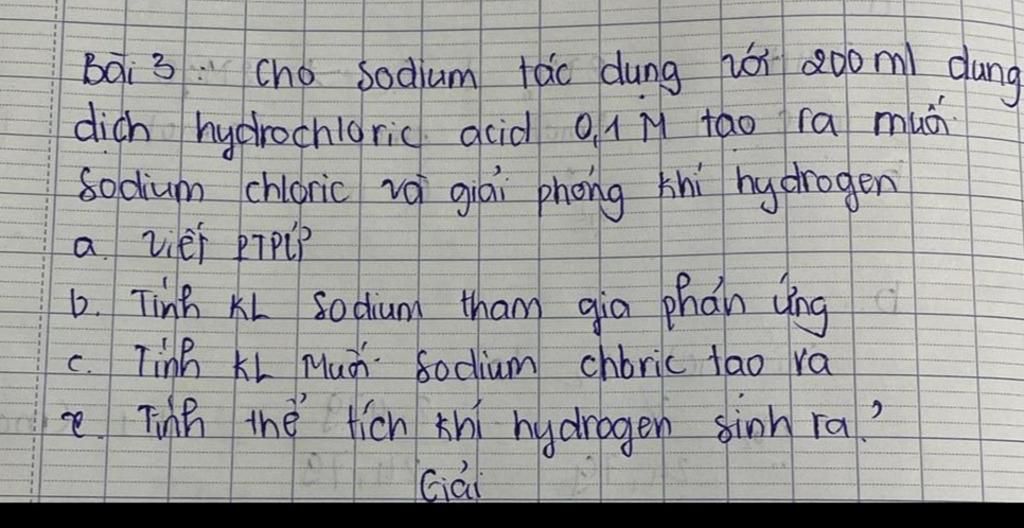 Bài 3: Cho sodium tác dụng với 200 ml dung
dịch hydrochloric acid 0,1 M tạo ra muối
Sodium chloric và giải phóng khí hydrogen
a. Viết PTPỨ
b. Tính KL sodium tham gia phản ứng
c. Tính KL Muối Sodium chloric tạo ra
e. Tính thể tích khí hydrogen sinh ra?
Giải